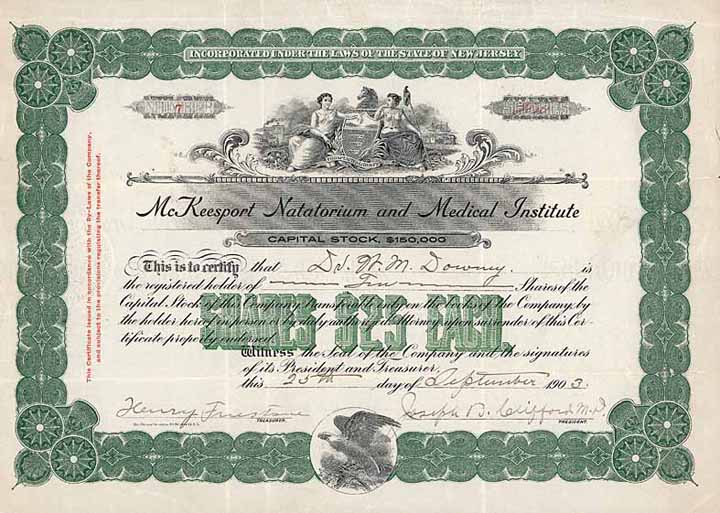 INCORPORATED UNDER THE LAWS OF THE STATE OF NEW JERSEY.
NUMBER
7
SHARES
McKeesport Natatorium and Medical Institute
CAPITAL STOCK, $150,000
This is to certify that W. M. Downey. is
the registered holder of Shares of the
Capital Stock of this Company transferable only on the books of the Company by
the holder hereof in person or by duly authorized Attorney upon surrender of this Cer-
tificate properly endorsed.
SHARES $5 EACH
Witness the Seal of the Company and the signatures
of its President and Treasurer,
this 25th day of September 1903.
Henry Firestone
TREASURER.
Joseph B. Clifford M.D.
PRESIDENT.
This Certificate issued in accordance with the By-Laws of the Company,
and subject to the provisions regulating the transfer thereof.